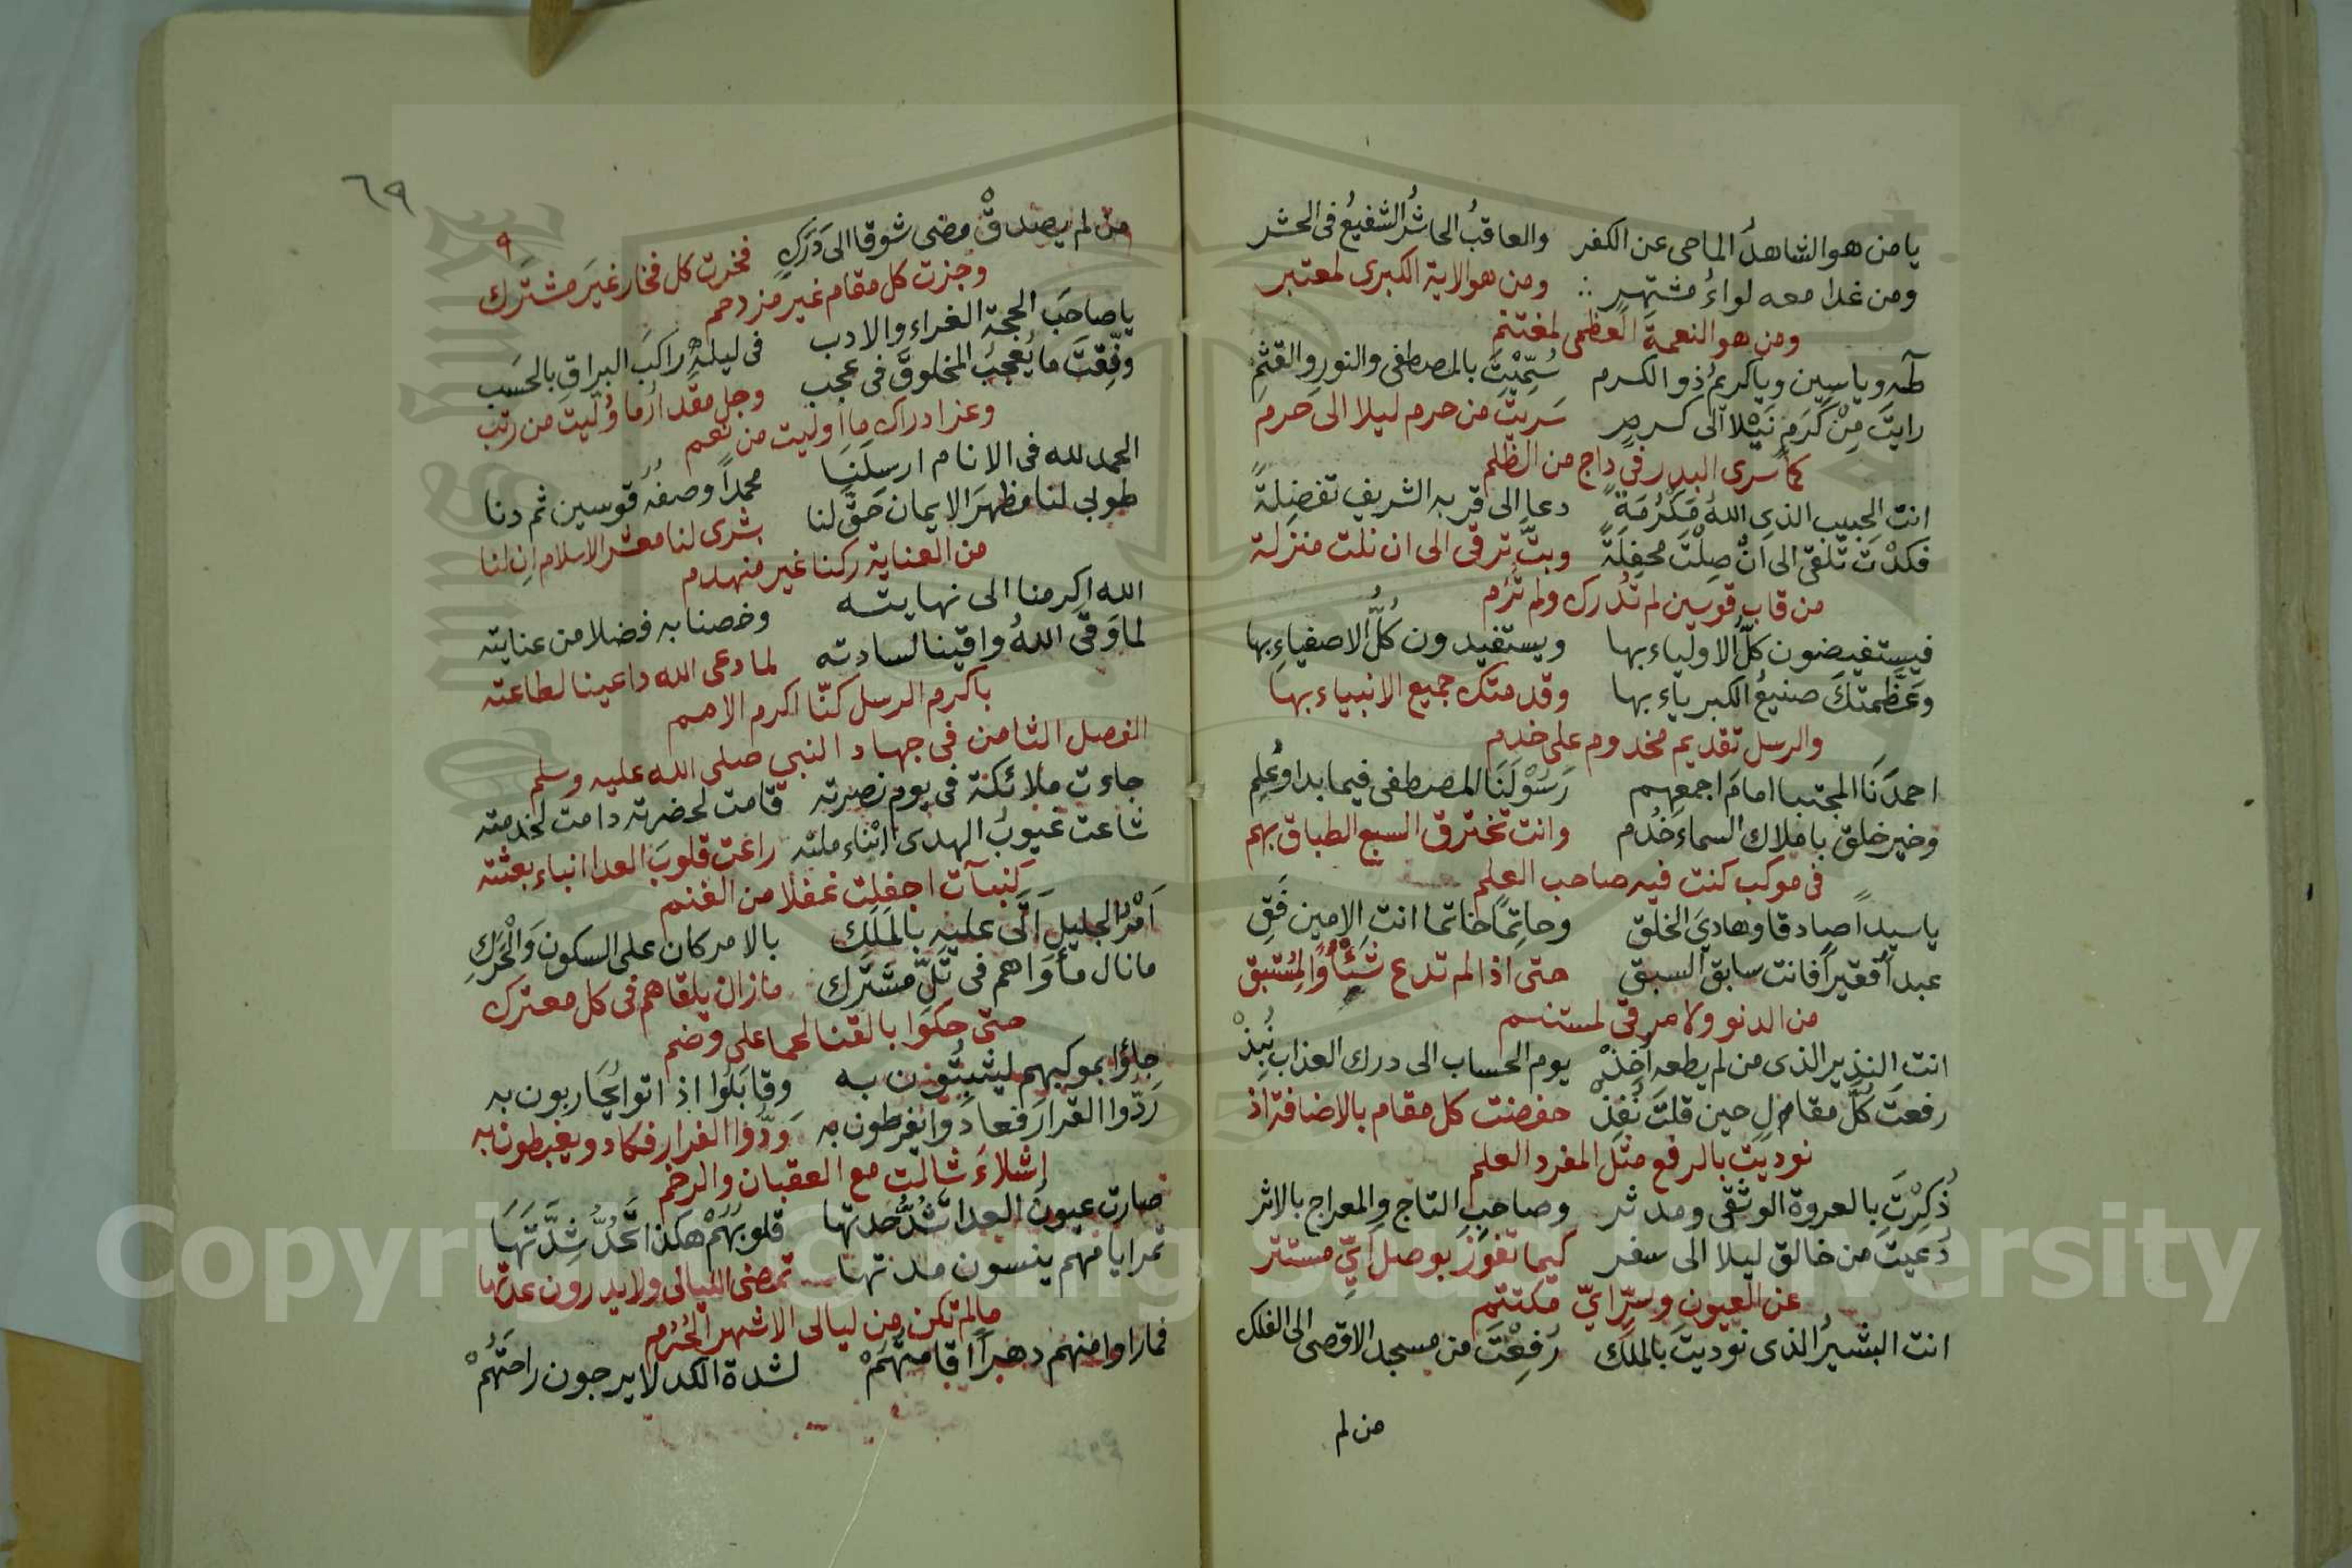 يا من هو الشاهدُ الماحى عن الكفر والعاقبُ الحاشرُ الشفيعُ فى الحشر
ومن غدا معه لواءُ مشتهرٍ ∴ ومن هو الاية الكبرى لمعتبر
ومن هو النعمة العظمى لمغتنم
طه وياسين وياكريمُ ذو الكرم سُمِّيْتَ بالمصطفى والنورِ والقثمِ
رايتَ مِنْ كَرَمٍ نَيْلا الى كرم سَريتَ من حرم ليلا الى حرم
كما سرى البدر فى داج من الظلم
انت الحبيب الذى اللهُ مَكْرُمَةً دعا الى قربه الشريف تفضِلةً
فكدْتَ تلقى الى انْ صِلْتَ محفِلَةً وبتَّ ترقى الى ان نلت منزلة
من قاب قوسين لم تُدرك ولم تُرَم
فيستفيضون كلُّ الاولياء بها ويستفيدون كلُّ الاصفياءِ بها
وعَظَّمتكَ صنيعُ الكبرياء بها وقدمتك جميع الانبياء بها
والرسل تقديم مخدوم على خدم
احمدَنَا المجتبا امامَ اجمعِهم رَسُوْلَنَا المصطفى فيما بدا وعُلِم
وخير خلق باملاك السماء خُدُم وانت تخترق السبع الطباق بهم
فى موكب كنت فيه صاحب العلم
يا سيداً صادقا وهادىَ الخلق وحاتِمًا خاتما انت الامين فَقِ
عبداً فقيراً فانت سابق السبق حتى اذا لم تدع شَئْاًوًا لِمُستبق
من الدنو ولا مرقى لمستنم
انت النذير الذى من لم يطعه اُخِذْ يوم الحساب الى درك العذاب نُبِذْ
رفعتَ كلَّ مقامٍ لِ حين قلتَ نُفِذْ خفضت كل مقام بالاضافة اذ
نوديتَ بالرفع مثل المفرد العلم
ذُكِرْتَ بالعروة الوثقى ومدثر وصاحبِ التاج والمعراج بالاثر
دُعيتَ من خالق ليلا الى سفر كيما تفوز بوصل اىِّ مستتر
عن العيون وسرِّ اىِّ مكتتم
انت البشيرُ الذى نوديتَ بالملك رُفِعْتَ من مسجد الاقصى الى الفلك
من لم
٦٩
٩
من لم يصدقْ مضى شوقا الى دَرَكٍ فخرت كل فخار غيرَ مشترك
وجزت كل مقام غير مزدحم
يا صاحبَ الحجة الغراء والادب فى ليلةٍ راكبَ البراقِ بالحَسَب
وفّقتَ ما يُعجبُ المخلوقَ فى عجب وجل مقدارُ ما وُلّيت من رتب
وعز ادراك ما اوليت من نعم
الحمد لله فى الانام ارسلَنَا محمداً وصفُه قوسين ثم دنا
طوبى لنا مظهرَ الايمان حَقَّ لنا بشرى لنا معشر الاسلام ان لنا
من العناية ركنا غير منهدم
الله اكرمنا الى نهايته وخصنا به فضلا من عنايته
لما وَقَى اللهُ واقينا لسادته لما دعى الله داعينا لطاعته
باكرم الرسل كنّا اكرم الامم
الفصل الثامن فى جهاد النبى صلى الله عليه وسلم
جاءت ملائكة فى يوم نصرته قامت لحضرته دامت لخدمته
شاعت غيوبُ الهدى اثناء ملته راعت قلوبَ العدا انباء بعثته
كنبآت اجفلت غفلا من الغنم
اَمْرُ الجليلِ اَتَى عليه بالمَلَكِ بالامر كان على السكون وَالْحَرَكِ
ما نال مأواهم فى تلِّ مشترك ما زال يلقاهم فى كل معترك
حتى حكوا بالقنا لحما على وضم
جاؤا بموكبهم ليثبتُون به وقابَلُوا اذ اتوا يُحَاربون به
رَدُّوا القرارَ فعادَوا يفرطون به وَدُّوا الفرار فكادو يغبطون به
اشلاءَ شالت مع العقبان والرخم
صارت عيونُ العدا شُدُّ حدتها قلوبُهُمْ هكذا تُحَدُّ شِدَّتَهَا
تمر ايامهم ينسون مدتها تمضى الليالى ولا يدرون عدتها
مالم تكن من ليالى الاشهر الحُرُم
فما راوا منهم دهراً اقامتَهُمْ لشدة الكد لا يرجون راحتَهُمْ
Copyright © King Saud University